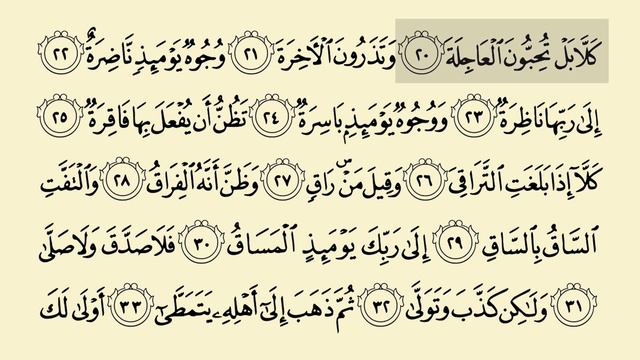 كَلَّا بَلْ تُحِبُّونَ ٱلْعَاجِلَةَ ٢٠ وَتَذَرُونَ ٱلْأَخِرَةَ ٢١ وُجُوهٌ يَوْمَئِذٍ نَّاضِرَةٌ ٢٢
إِلَىٰ رَبِّهَا نَاظِرَةٌ ٢٣ وَوُجُوهٌ يَوْمَئِذٍۭ بَاسِرَةٌ ٢٤ تَظُنُّ أَن يُفْعَلَ بِهَا فَاقِرَةٌ ٢٥
كَلَّآ إِذَا بَلَغَتِ ٱلتَّرَاقِىَ ٢٦ وَقِيلَ مَنْ ۜ رَاقٍ ٢٧ وَظَنَّ أَنَّهُ ٱلْفِرَاقُ ٢٨ وَٱلْتَفَّتِ
ٱلسَّاقُ بِٱلسَّاقِ ٢٩ إِلَىٰ رَبِّكَ يَوْمَئِذٍ ٱلْمَسَاقُ ٣٠ فَلَا صَدَّقَ وَلَا صَلَّىٰ
٣١ وَلَٰكِن كَذَّبَ وَتَوَلَّىٰ ٣٢ ثُمَّ ذَهَبَ إِلَىٰٓ أَهْلِهِۦ يَتَمَطَّىٰٓ ٣٣ أَوْلَىٰ لَكَ